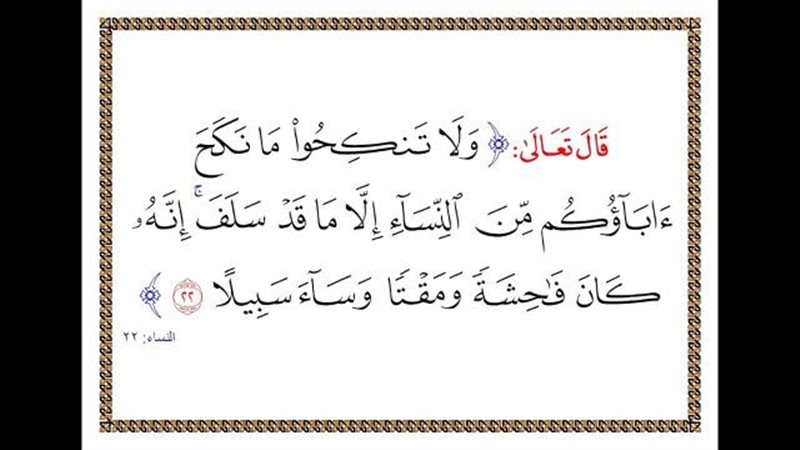 قَالَ تَعَالَىٰ: ﴿ وَلَا تَنكِحُوا۟ مَا نَكَحَ
ءَابَآؤُكُم مِّنَ ٱلنِّسَآءِ إِلَّا مَا قَدْ سَلَفَ ۚ إِنَّهُۥ
كَانَ فَٰحِشَةً وَمَقْتًا وَسَآءَ سَبِيلًا ٢٢ ﴾
النساء: ٢٢